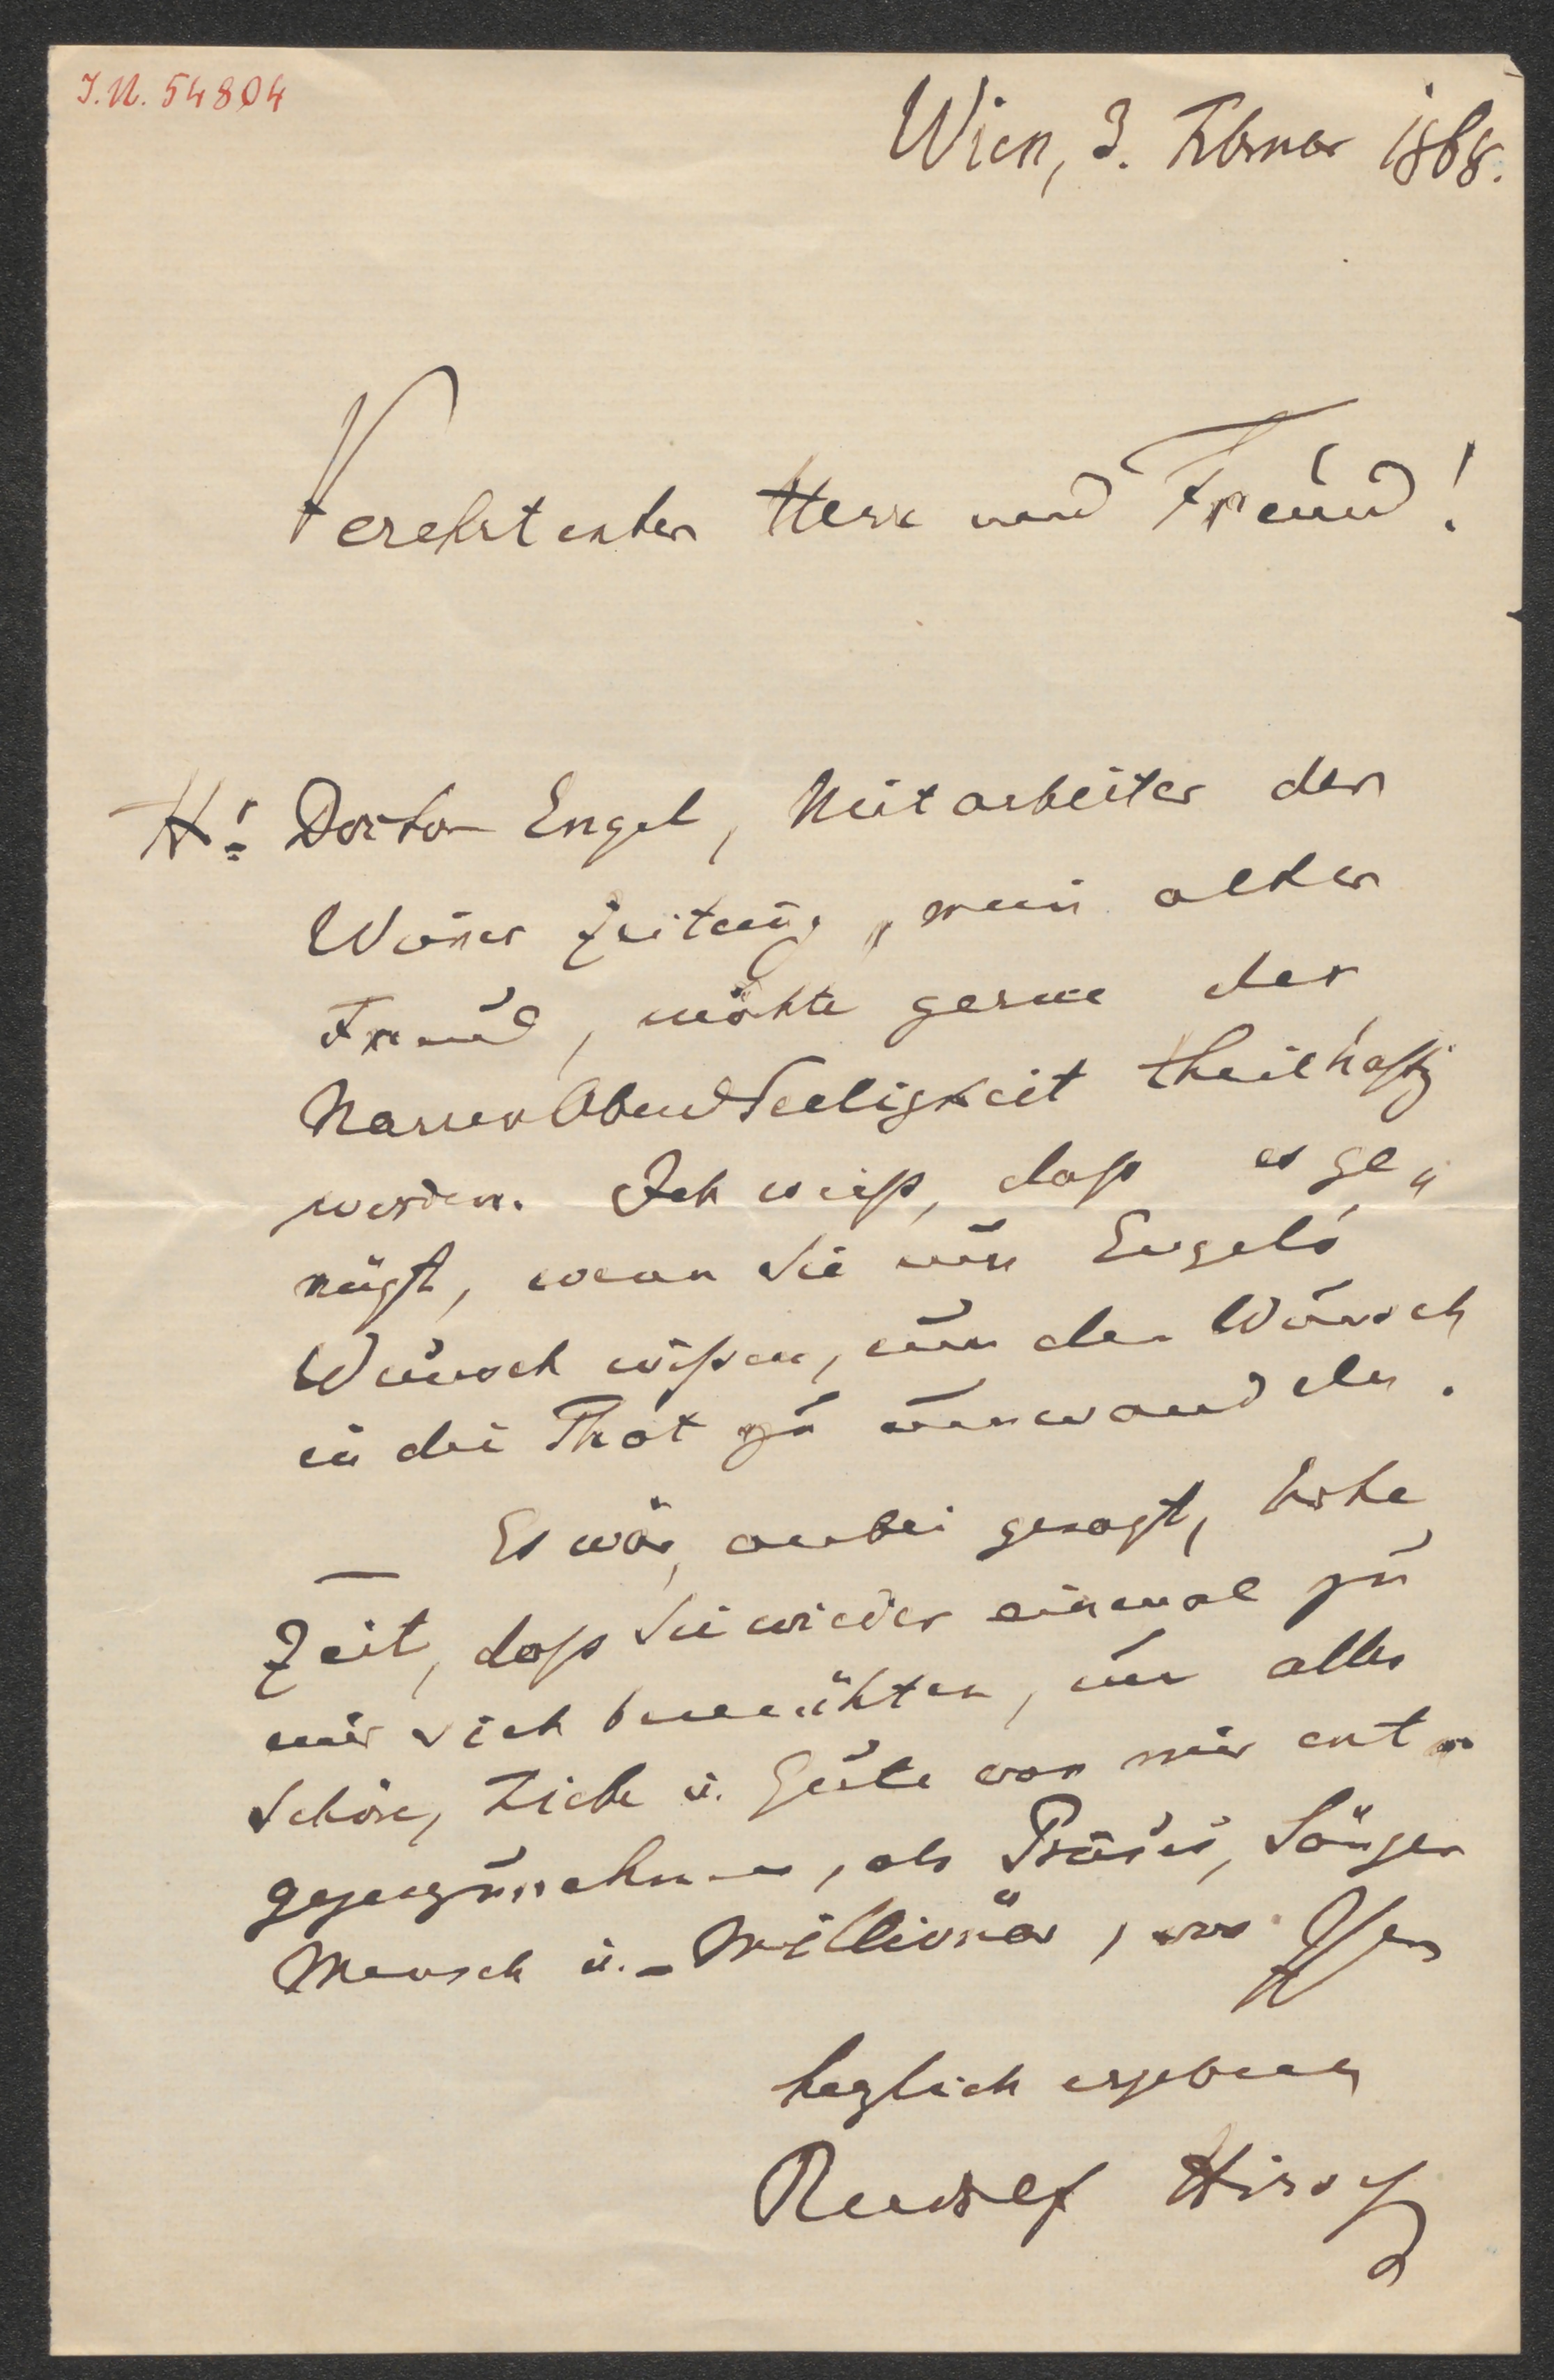 I.N. 54804
Wien, 3. Februar 1868.
Verehrtester Herr und Freund!
Hr. Doctor Engel, Mitarbeiter der
Wiener Zeitung, mein alter
Freund, möchte gerne der
NarrenAbendSeeligkeit theilhaftig
werden. Ich weiß, daß es ge„
nügt, wenn Sie um Engels
Wunsch wißen, um den Wunsch
in die That zu umwandeln.
Es wär, anbei gesagt, hohe
Zeit, daß Sie wieder einmal zu
mir sich bemühten, um alles
Schöne, Liebe u. Gute von mir ent„
gegenzunehmen, als Präses, Sänger
Mensch u. – Millionär, von Ihrem
herzlich ergebenen
Rudolf Hirsch